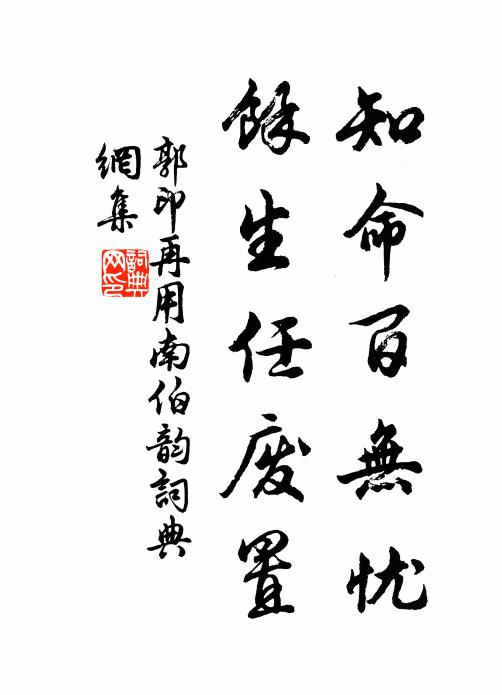 知命百無忧
餘生任废置
郭印再用南伯韵詞典
網集
詞典
网印